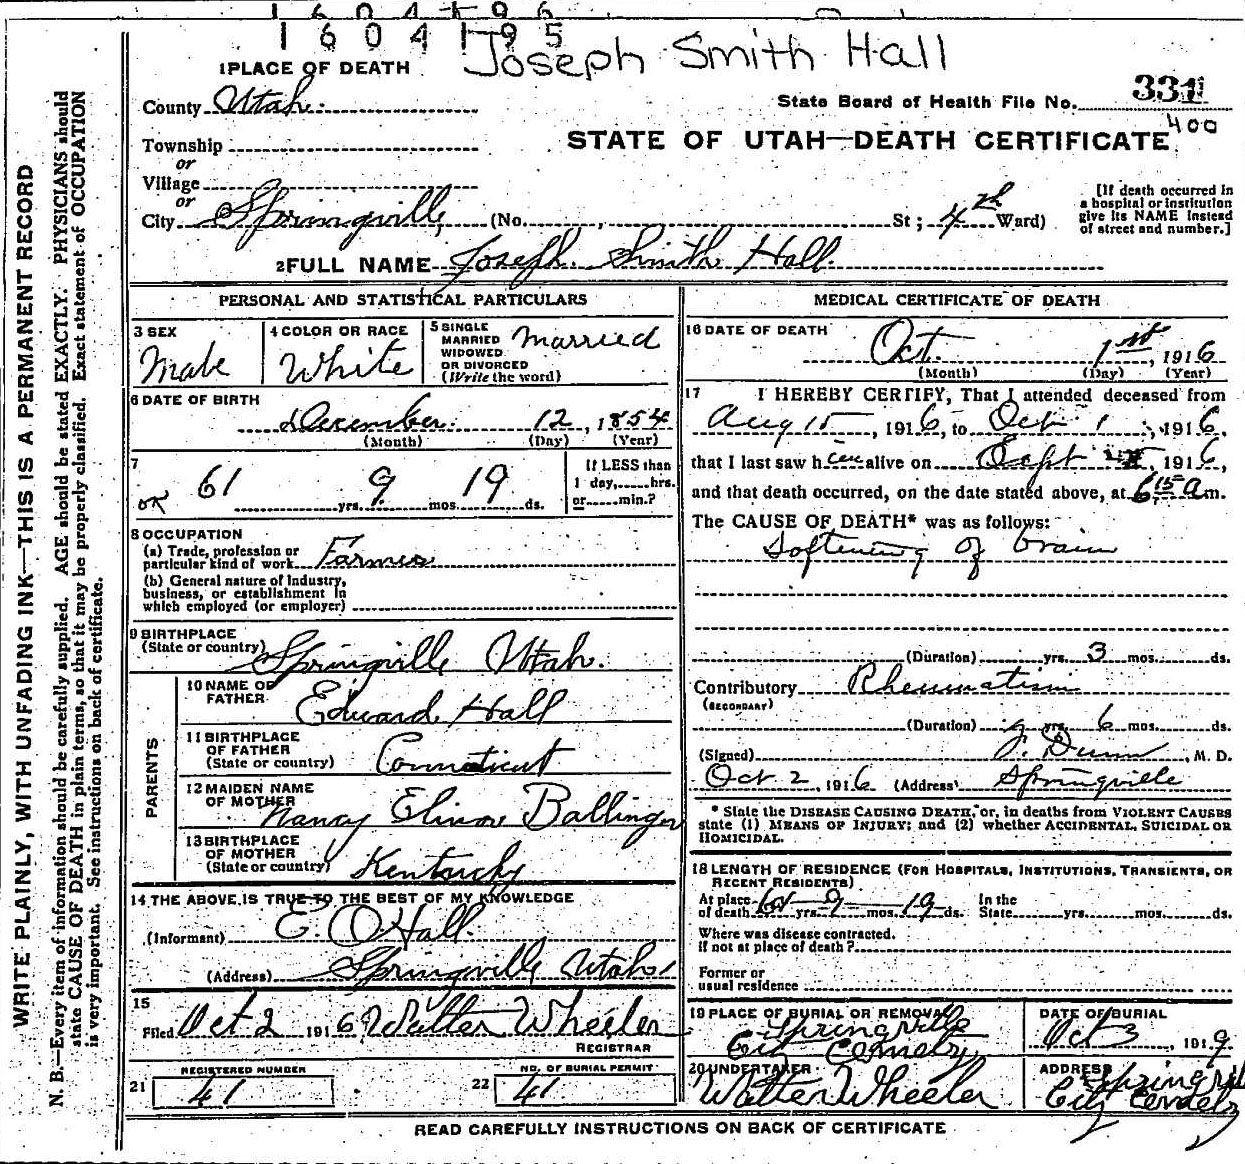 1604195
Joseph Smith Hall
1 PLACE OF DEATH
County Utah.
State Board of Health File No. 331
400
STATE OF UTAH—DEATH CERTIFICATE
Township
or
Village
or
City Springville, (No. , St ; 4th Ward)
[If death occurred in
a hospital or institution
give its NAME instead
of street and number.]
2 FULL NAME Joseph Smith Hall.
PERSONAL AND STATISTICAL PARTICULARS
3 SEX
Male
4 COLOR OR RACE
White
5 SINGLE
MARRIED
WIDOWED
OR DIVORCED
(Write the word)
Married
6 DATE OF BIRTH
December 12, 1854
(Month) (Day) (Year)
7
OK 61 yrs. 9 mos. 19 ds.
If LESS than
1 day,......hrs.
or......min.?
8 OCCUPATION
(a) Trade, profession or
particular kind of work Farmer
(b) General nature of Industry,
business, or establishment in
which employed (or employer)
9 BIRTHPLACE
(State or country) Springville Utah.
PARENTS
10 NAME OF
FATHER Edward Hall
11 BIRTHPLACE
OF FATHER
(State or country) Connecticut
12 MAIDEN NAME
OF MOTHER Nancy Elinore Ballinger
13 BIRTHPLACE
OF MOTHER
(State or country) Kentucky
14 THE ABOVE IS TRUE TO THE BEST OF MY KNOWLEDGE
(Informant) E. O Hall.
(Address) Springville Utah
15
Filed Oct 2 1916 Walter Wheeler
REGISTRAR
21 REGISTERED NUMBER
41
22 NO. OF BURIAL PERMIT
41
MEDICAL CERTIFICATE OF DEATH
16 DATE OF DEATH
Oct. 1st, 1916
(Month) (Day) (Year)
17 I HEREBY CERTIFY, That I attended deceased from
Aug 15, 1916, to Oct 1, 1916,
that I last saw him alive on Sept , 1916,
and that death occurred, on the date stated above, at 6 15 a m.
The CAUSE OF DEATH* was as follows:
Softening of brain
(Duration) yrs. 3 mos. ds.
Contributory Rheumatism
(SECONDARY)
(Duration) yrs. 6 mos. ds.
(Signed) Dunn, M. D.
Oct 2, 1916 (Address) Springville
* State the DISEASE CAUSING DEATH, or, in deaths from VIOLENT CAUSES
state (1) MEANS OF INJURY; and (2) whether ACCIDENTAL, SUICIDAL OR
HOMICIDAL.
18 LENGTH OF RESIDENCE (FOR HOSPITALS, INSTITUTIONS, TRANSIENTS, OR
RECENT RESIDENTS)
At place
of death yrs. 9 mos. 19 ds. In the
State yrs. mos. ds.
Where was disease contracted.
if not at place of death?
Former or
usual residence
19 PLACE OF BURIAL OR REMOVAL
Springville
City Cemetery
DATE OF BURIAL
Oct 3, 1919
20 UNDERTAKER
Walter Wheeler
ADDRESS
Springville
City Cemetery
READ CAREFULLY INSTRUCTIONS ON BACK OF CERTIFICATE
WRITE PLAINLY, WITH UNFADING INK—THIS IS A PERMANENT RECORD
N. B.—Every item of information should be carefully supplied. AGE should be stated EXACTLY. PHYSICIANS should
state CAUSE OF DEATH in plain terms, so that it may be properly classified. Exact statement of OCCUPATION
is very important. See instructions on back of certificate.